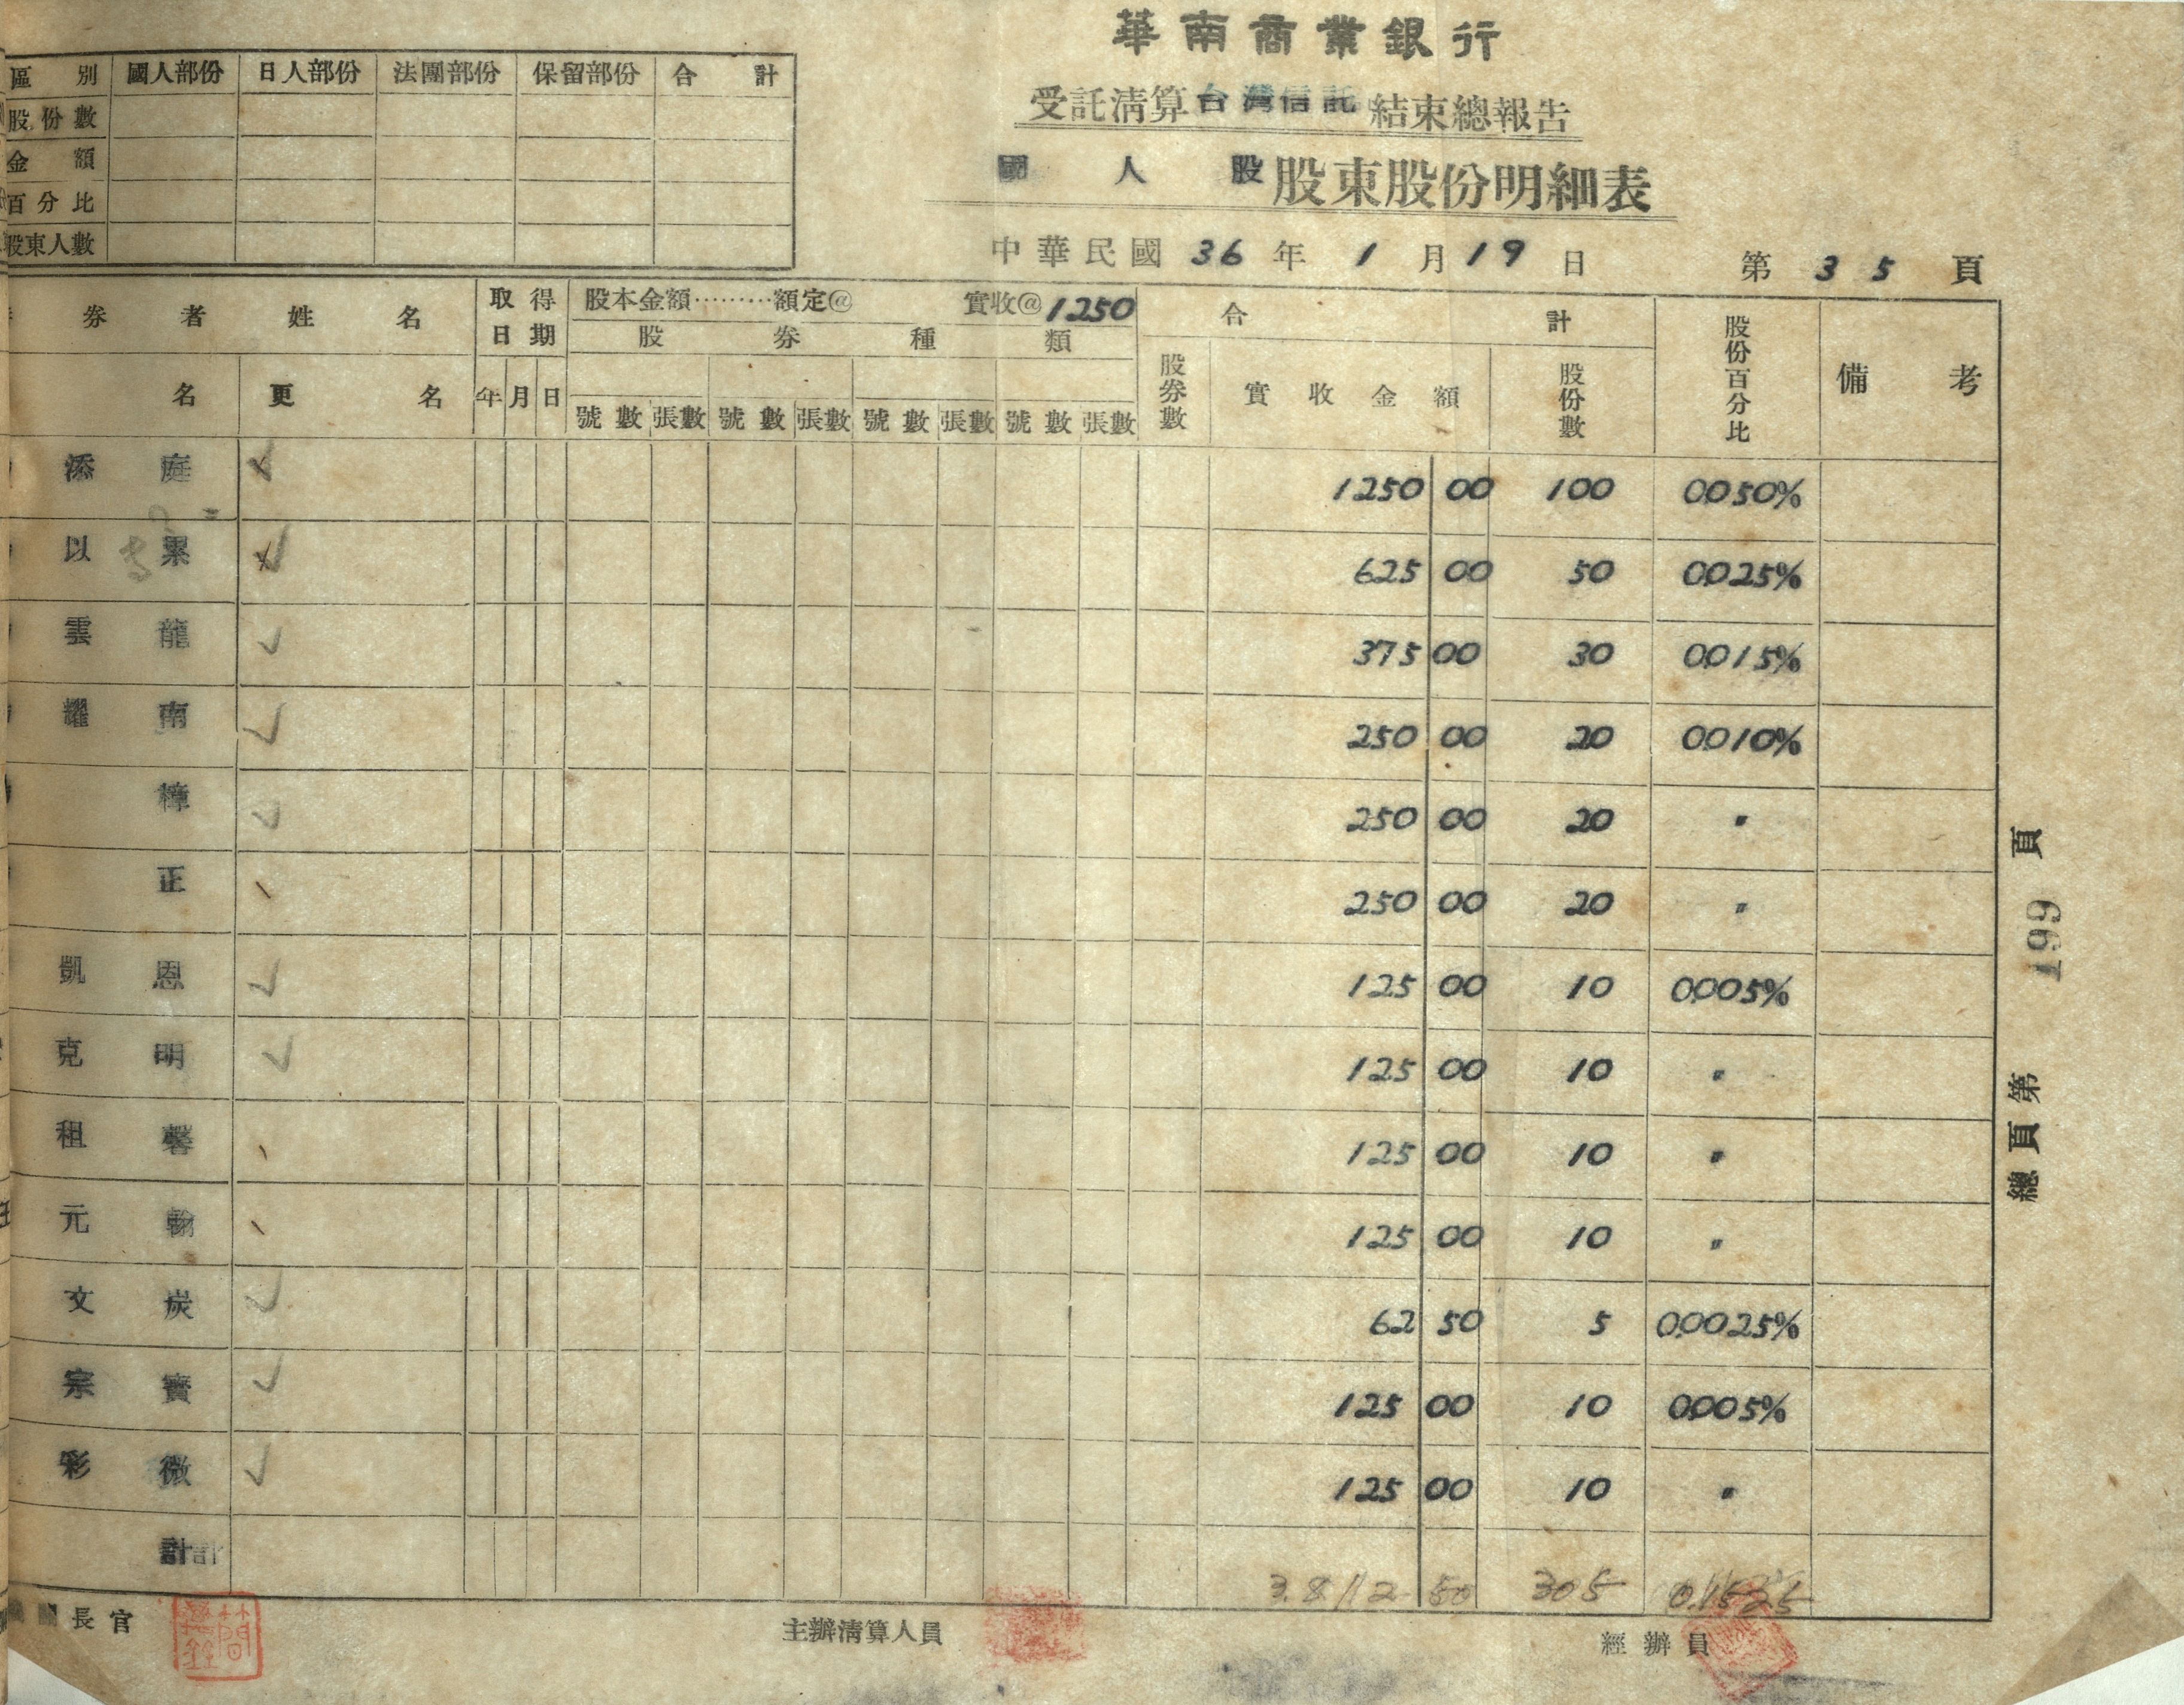 華南商業銀行
受託清算台灣信託結束總報告
國人股股東股份明細表
中華民國 36 年 1 月 19 日
第 35 頁
區別 國人部份 日人部份 法團部份 保留部份 合計
股份數
金額
百分比
股東人數
券者姓名 取得日期 股本金額………額定@ 實收@1250 合計 股份百分比 備考
股券種類
名 更名 年 月 日 號數 張數 號數 張數 號數 張數 號數 張數 股券數 實收金額 股份數
添庭 1250 00 100 0.050%
以 625 00 50 0.025%
雲龍 375 00 30 0.015%
耀南 250 00 20 0.010%
樟 250 00 20 〃
正 250 00 20 〃
凱恩 125 00 10 0.005%
克明 125 00 10 〃
祖馨 125 00 10 〃
元翰 125 00 10 〃
文炭 62 50 5 0.0025%
宗寶 125 00 10 0.005%
彩微 125 00 10 〃
計計 3.812 50 305 0.1525
長官 主辦清算人員 經辦員
總頁第 199 頁